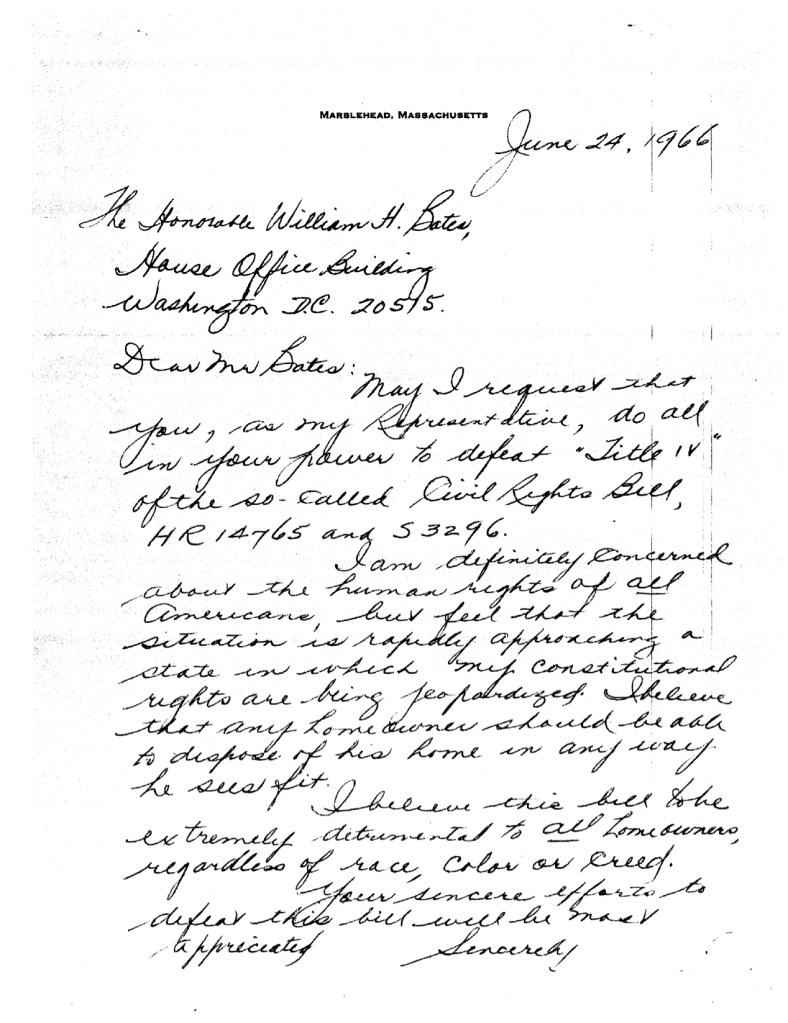 MARBLEHEAD, MASSACHUSETTS
June 24, 1966
The Honorable William H. Bates,
House Office Building
Washington D.C. 20515.
Dear Mr Bates:
May I request that
you, as my Representative, do all
in your power to defeat "Title IV"
of the so-called Civil Rights Bill,
HR 14765 and S 3296.
I am definitely concerned
about the human rights of all
Americans, but feel that the
situation is rapidly approaching a
state in which my constitutional
rights are being jeopardized. I believe
that any homeowner should be able
to dispose of his home in any way
he sees fit.
I believe this bill to be
extremely detrimental to all homeowners,
regardless of race, color or creed.
Your sincere efforts to
defeat this bill will be most
appreciated
Sincerely